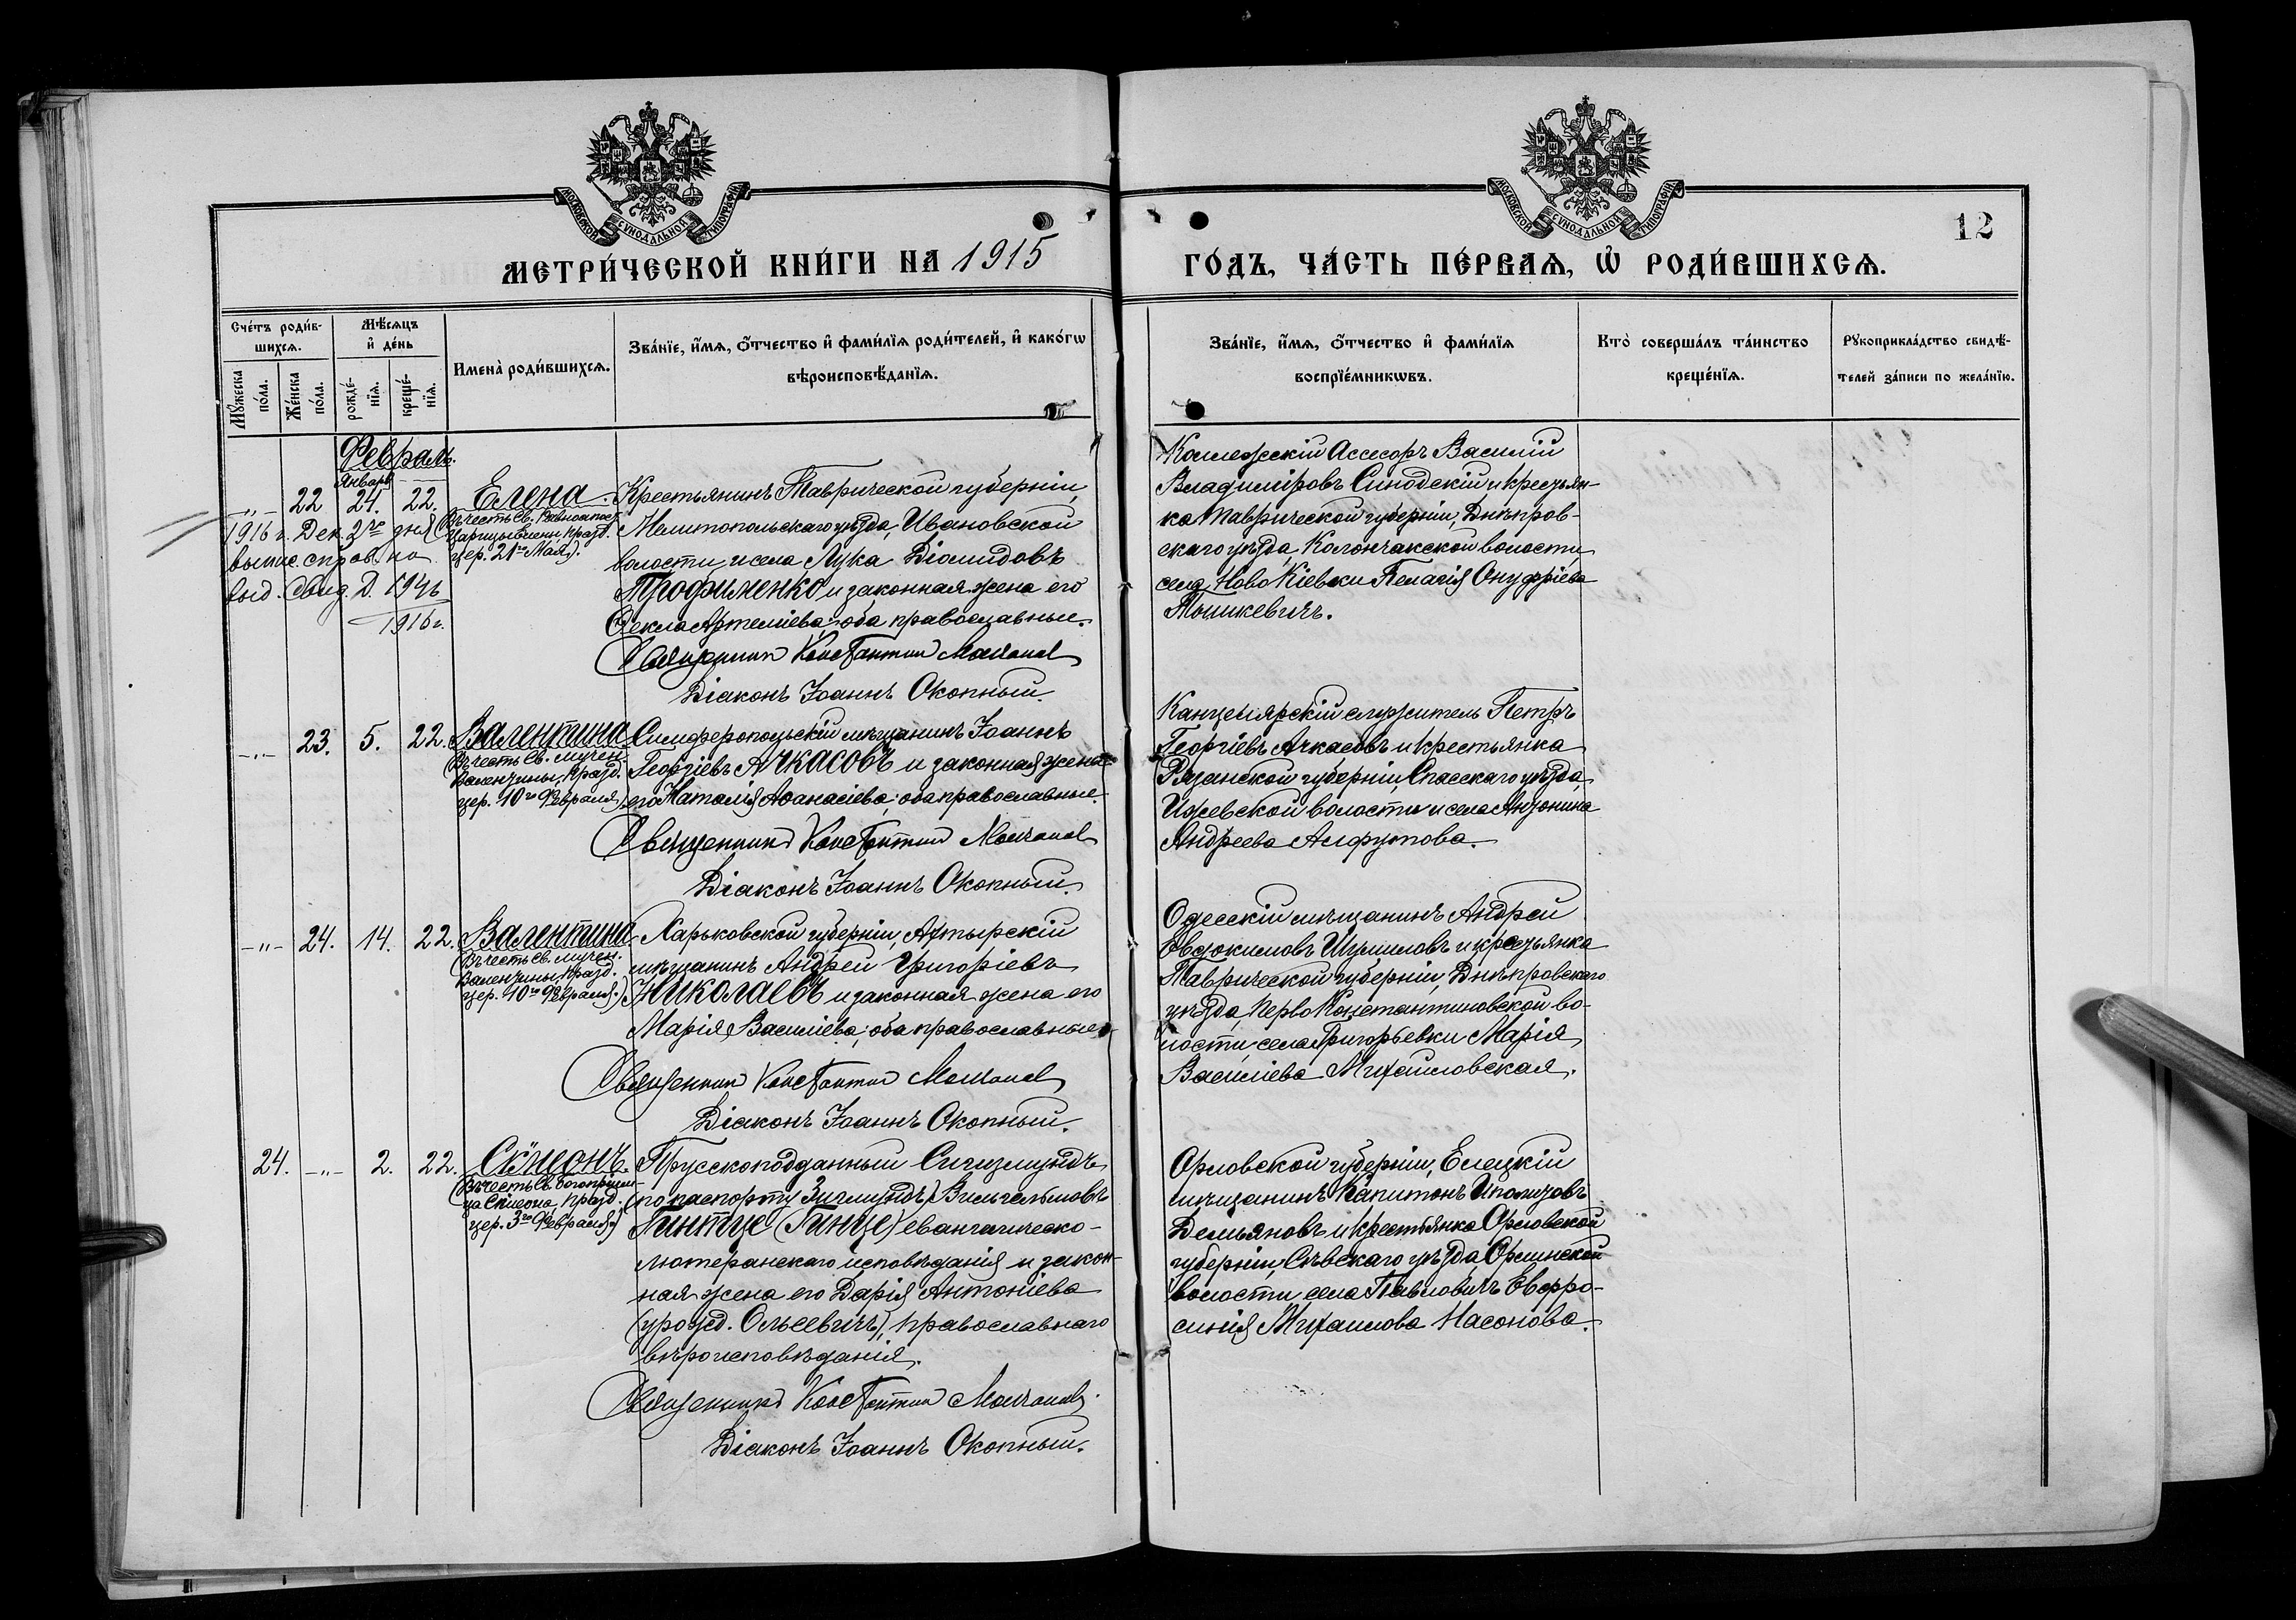 МОСКОВСКОЙ СѴНОДАЛЬНОЙ ТИПОГРАФІИ
МОСКОВСКОЙ СѴНОДАЛЬНОЙ ТИПОГРАФІИ
12
МЕТРИ́ЧЕСКОЙ КНИ́ГИ НА 1915
ГО́ДЪ, ЧА́СТЬ ПЕ́РВАѦ, Ѡ҆ РОДИ́ВШИХСѦ.
Сче́тъ роди́в-
шихсѧ.
Мꙋ́жеска
по́ла.
Же́нска
по́ла.
Мѣ́сѧцъ
и҆ де́нь
рожде́-
нїѧ.
креще́-
нїѧ.
Имена̀ роди́вшихсѧ.
Зва́нїе, и҆́мѧ, ѻ҆́тчество и҆ фами́лїѧ роди́телей, и҆ како́гѡ
вѣроисповѣ́данїѧ.
Зва́нїе, и҆́мѧ, ѻ҆́тчество и҆ фами́лїѧ
воспрїе́мникѡвъ.
Кто̀ соверша́лъ та́инство
креще́нїѧ.
Рꙋкоприкла́дство свидѣ́-
телей за́писи по жела́нїю.
Февраль.
Январь
-„- 22 24. 22. Елена.
(Въ честь Св. Равноапост.
Царицы Елены, празд.
цер. 21го Мая).
1916 г. Дек. 2го дня
выд. Свид. №. 1946
1916 г.
Крестьянинъ Таврической губерніи,
Мелитопольскаго уѣзда, Ивановской
волости и села Лука Діомидовъ
Трофименко и законная жена его
Ѳекла Артеміева; оба православные.
Священникъ Константинъ
Діаконъ Іоаннъ Окопный.
Коллежскій Ассесоръ Василій
Владиміровъ Синодскій и крестьян-
ка Таврической губерніи, Днѣпров-
скаго уѣзда, Колончакской волости,
села Ново Кіевки Пелагія Онуфріева
Мышкевичъ.
-„- 23. 5. 22. Валентина
(Въ честь Св. мучен.
Валентины, празд.
цер. 10го Февраля).
Симферопольскій мѣщанинъ Іоаннъ
Георгіевъ Ачкасовъ и законная жена
его Наталія Аѳанасіева; оба православные.
Священникъ Константинъ
Діаконъ Іоаннъ Окопный.
Канцелярскій служитель Петръ
Георгіевъ Ачкасовъ и крестьянка
Рязанской губерніи, Спасскаго уѣзда,
Ижевской волости и села Антонина
Андреева Алфутова.
-„- 24. 14. 22. Валентина
(Въ честь Св. мучен.
Валентины, празд.
цер. 10го Февраля.)
Харьковской губерніи, Ахтырскій
мѣщанинъ Андрей Григоріевъ
Николаевъ и законная жена его
Марія Василіева; оба православные.
Священникъ Константинъ
Діаконъ Іоаннъ Окопный.
Одесскій мѣщанинъ Андрей
Евдокимовъ и крестьянка
Таврической губерніи, Днѣпровскаго
уѣзда, Перво Константиновской во-
лости, села Григорьевки Марія
Василіева Михайловская.
24. -„- 2. 22. Сѵмеонъ.
(Въ честь Св. Богопріим-
ца Сѵмеона, празд.
цер. 3го Февраля.)
Прусскоподданный Сигизмундъ
(по паспорту Зигмундъ) Вильгельмовъ
Гинтце (Гинце) евангелическо-
лютеранскаго исповѣданія и закон-
ная жена его Дарія Антоніева
(урожд. Ольсевичъ), православнаго
вѣроисповѣданія.
Священникъ Константинъ
Діаконъ Іоаннъ Окопный.
Орловской губерніи, Елецкій
мѣщанинъ Капитонъ Иполитовъ
Демьяновъ и крестьянка Орловской
губерніи, Сѣвскаго уѣзда, Орлинской
волости, села Павловичъ Евфро-
синія Михаилова Насонова.